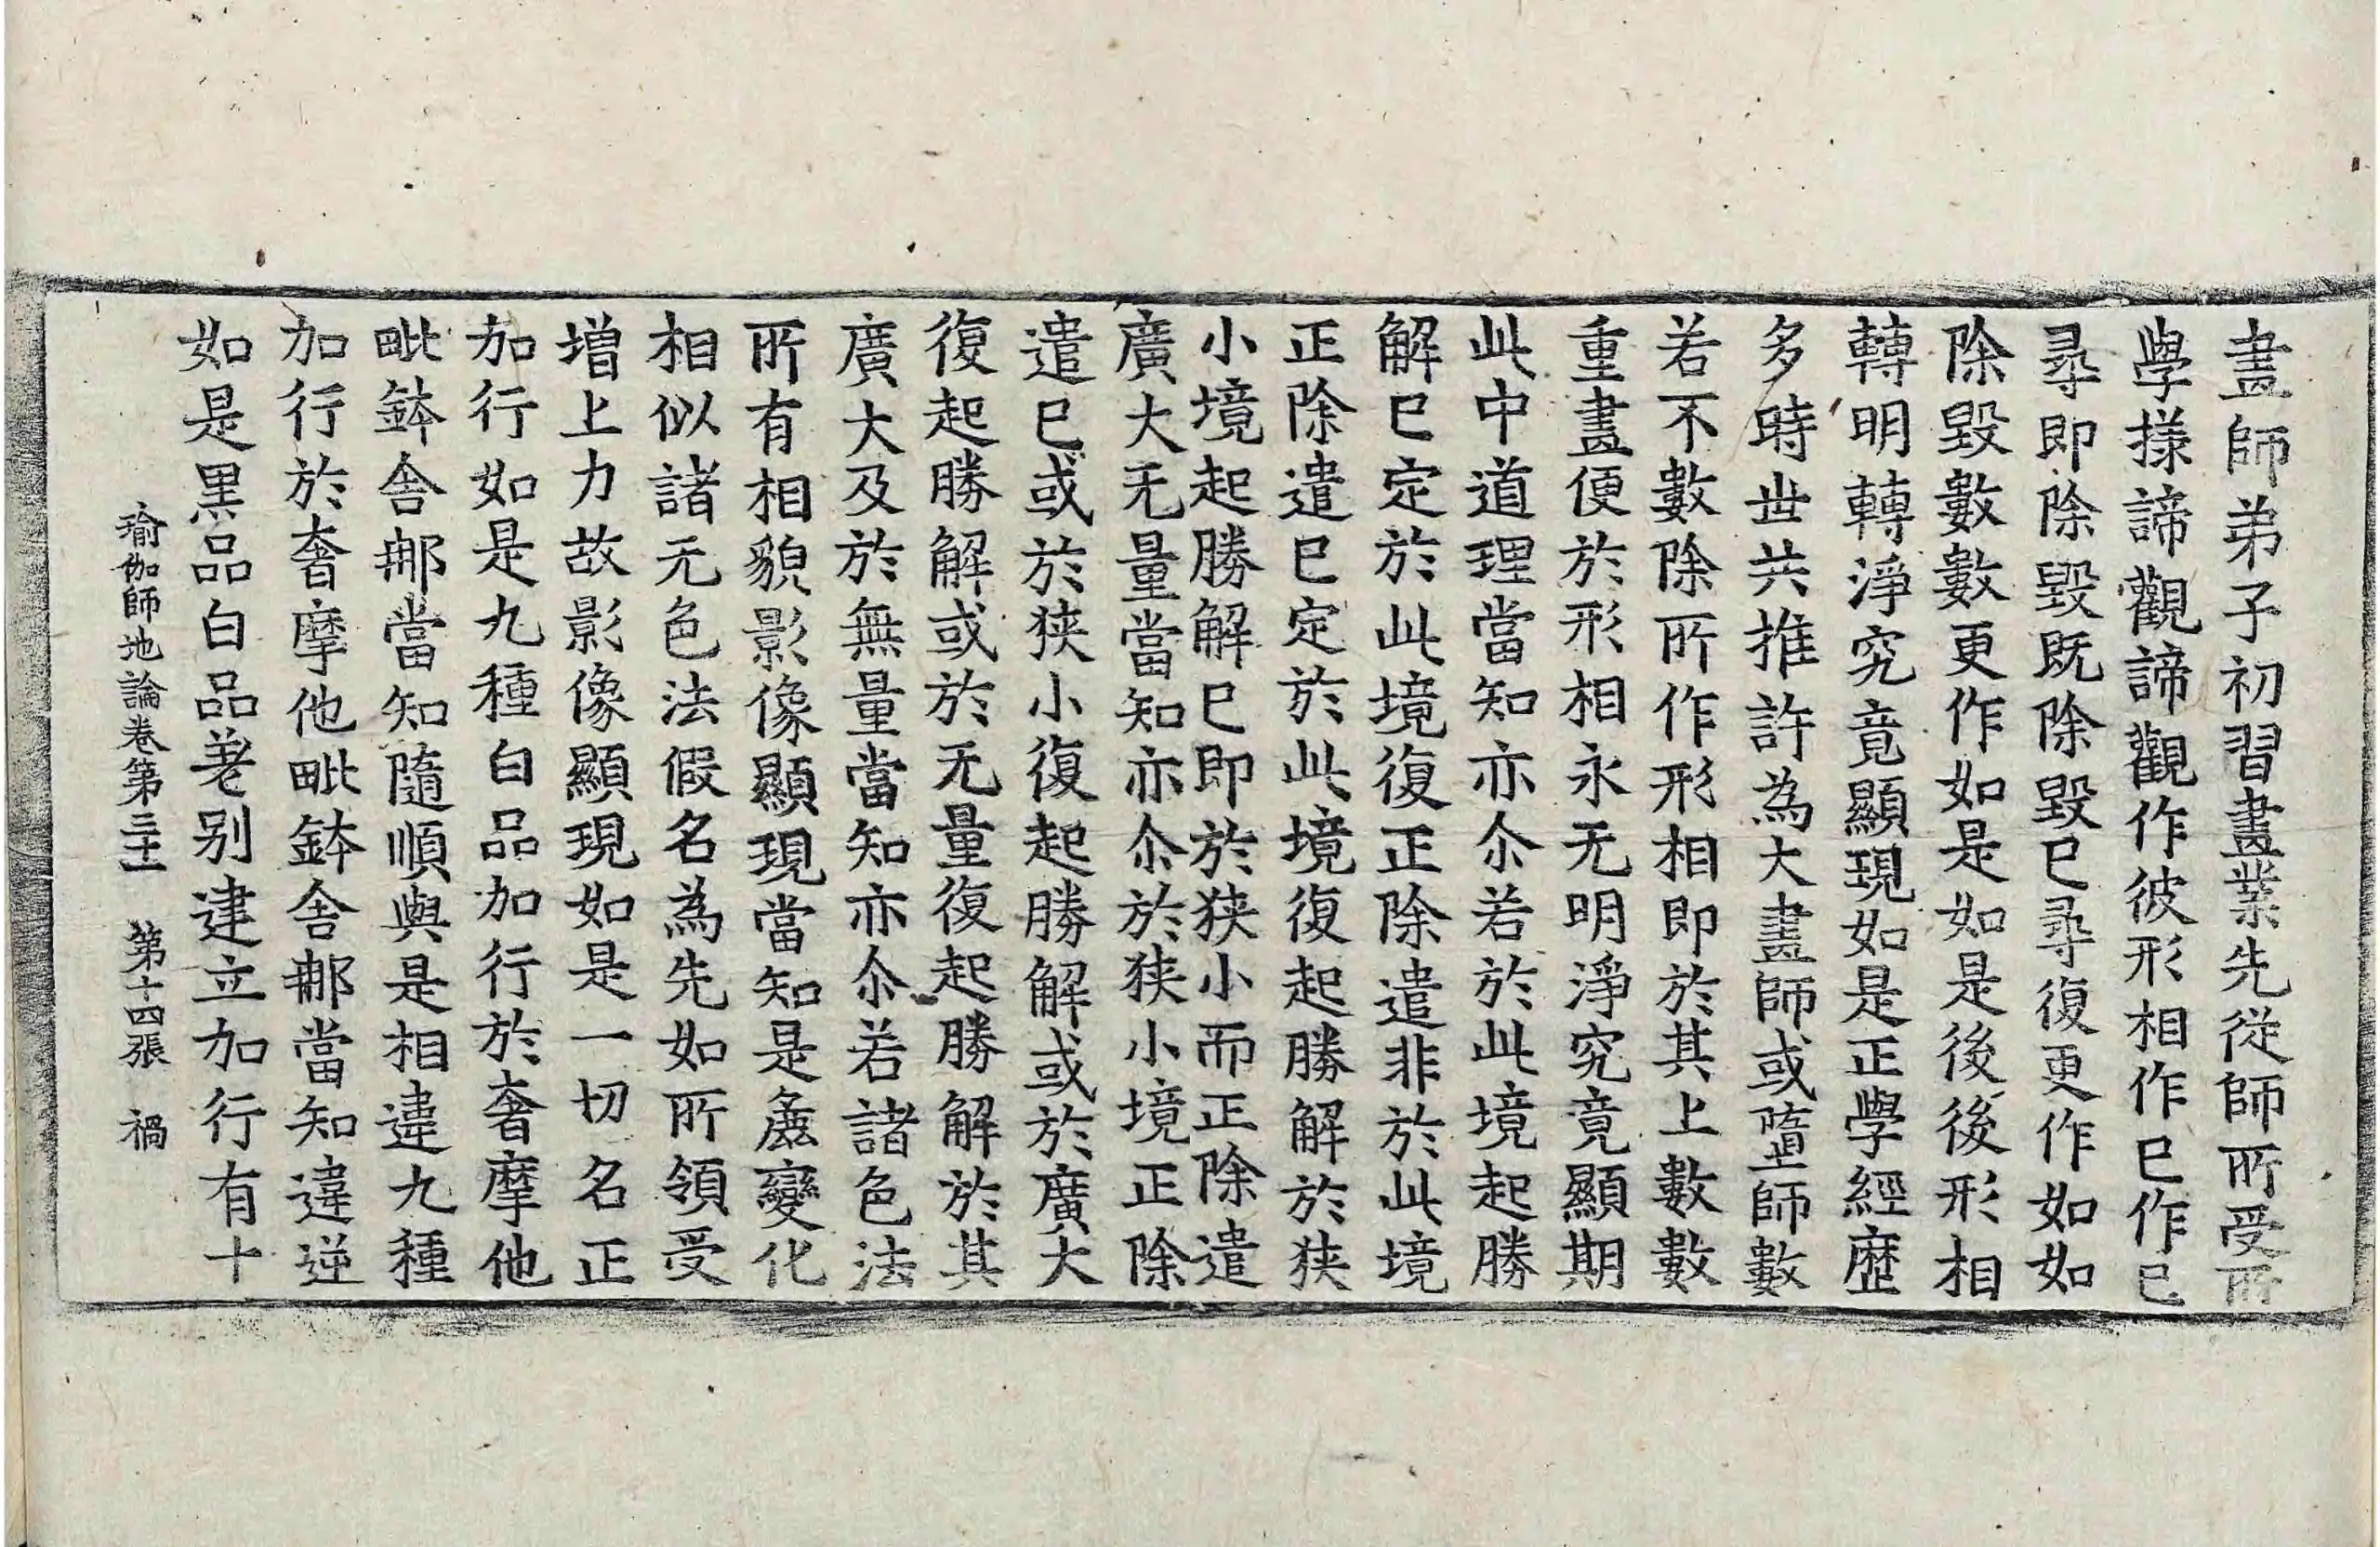 畫師弟子初習畫業先從師所受所
學㨾諦觀諦觀作彼形相作已作已
尋即除毀既除毀已尋復更作如如
除毀數數更作如是如是後後形相
轉明轉淨究竟顯現如是正學經歷
多時世共推許為大畫師或墮師數
若不數除所作形相即於其上數數
重畫便於形相永无明淨究竟顯期
此中道理當知亦尒若於此境起勝
解已定於此境復正除遣非於此境
正除遣已定於此境復起勝解於狹
小境起勝解已即於狹小而正除遣
廣大无量當知亦尒於狹小境正除
遣已或於狹小復起勝解或於廣大
復起勝解或於无量復起勝解於其
廣大及於無量當知亦尒若諸色法
所有相貌影像顯現當知是麁變化
相似諸无色法假名為先如所領受
增上力故影像顯現如是一切名正
加行如是九種白品加行於奢摩他
毗鉢舍那當知隨順與是相違九種
加行於奢摩他毗鉢舍那當知違逆
如是黑品白品差别建立加行有十
瑜伽師地論卷第三十一 第十四張 禍